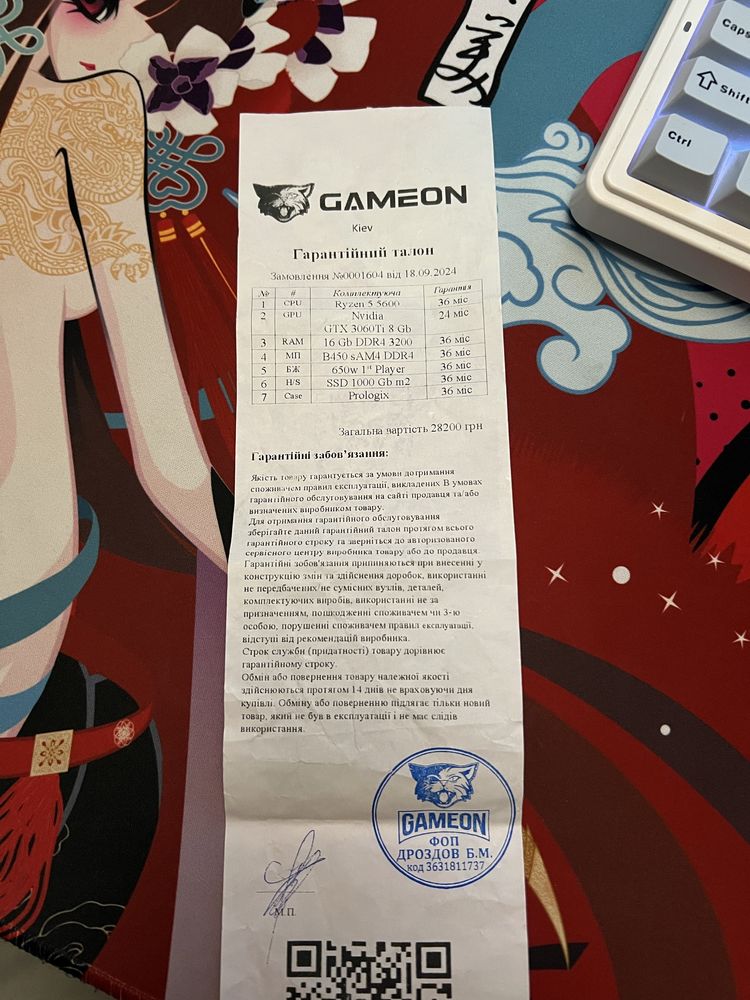 Caps
Shift
Ctrl
GAMEON
Kiev
Гарантійний талон
Замовлення №0001604 від 18.09.2024
№ # Комплектуюча Гарантія
1 CPU Ryzen 5 5600 36 міс
2 GPU Nvidia 24 міс
GTX 3060Ti 8 Gb
3 RAM 16 Gb DDR4 3200 36 міс
4 МП B450 sAM4 DDR4 36 міс
5 БЖ 650w 1st Player 36 міс
6 H/S SSD 1000 Gb m2 36 міс
7 Case Prologix 36 міс
Загальна вартість 28200 грн
Гарантійні забов’язання:
Якість товару гарантується за умови дотримання
споживачем правил експлуатації, викладених В умовах
гарантійного обслуговування на сайті продавця та/або
визначених виробником товару.
Для отримання гарантійного обслуговування
зберігайте даний гарантійний талон протягом всього
гарантійного строку та зверніться до авторизованого
сервісного центру виробника товару або до продавця.
Гарантійні зобов'язання припиняються при внесенні у
конструкцію змін та здійснення доробок, використанні
не передбачених/не сумісних вузлів, деталей,
комплектуючих виробів, використанні не за
призначенням, пошкодженні споживачем чи 3-ю
особою, порушенні споживачем правил експлуатації,
відступі від рекомендацій виробника.
Строк служби (придатності) товару дорівнює
гарантійному строку.
Обмін або повернення товару належної якості
здійснюються протягом 14 днів не враховуючи дня
купівлі. Обміну або поверненню підлягає тільки новий
товар, який не був в експлуатації і не має слідів
використання.
GAMEON
ФОП
ДРОЗДОВ Б.М.
код 3631811737
М.П.